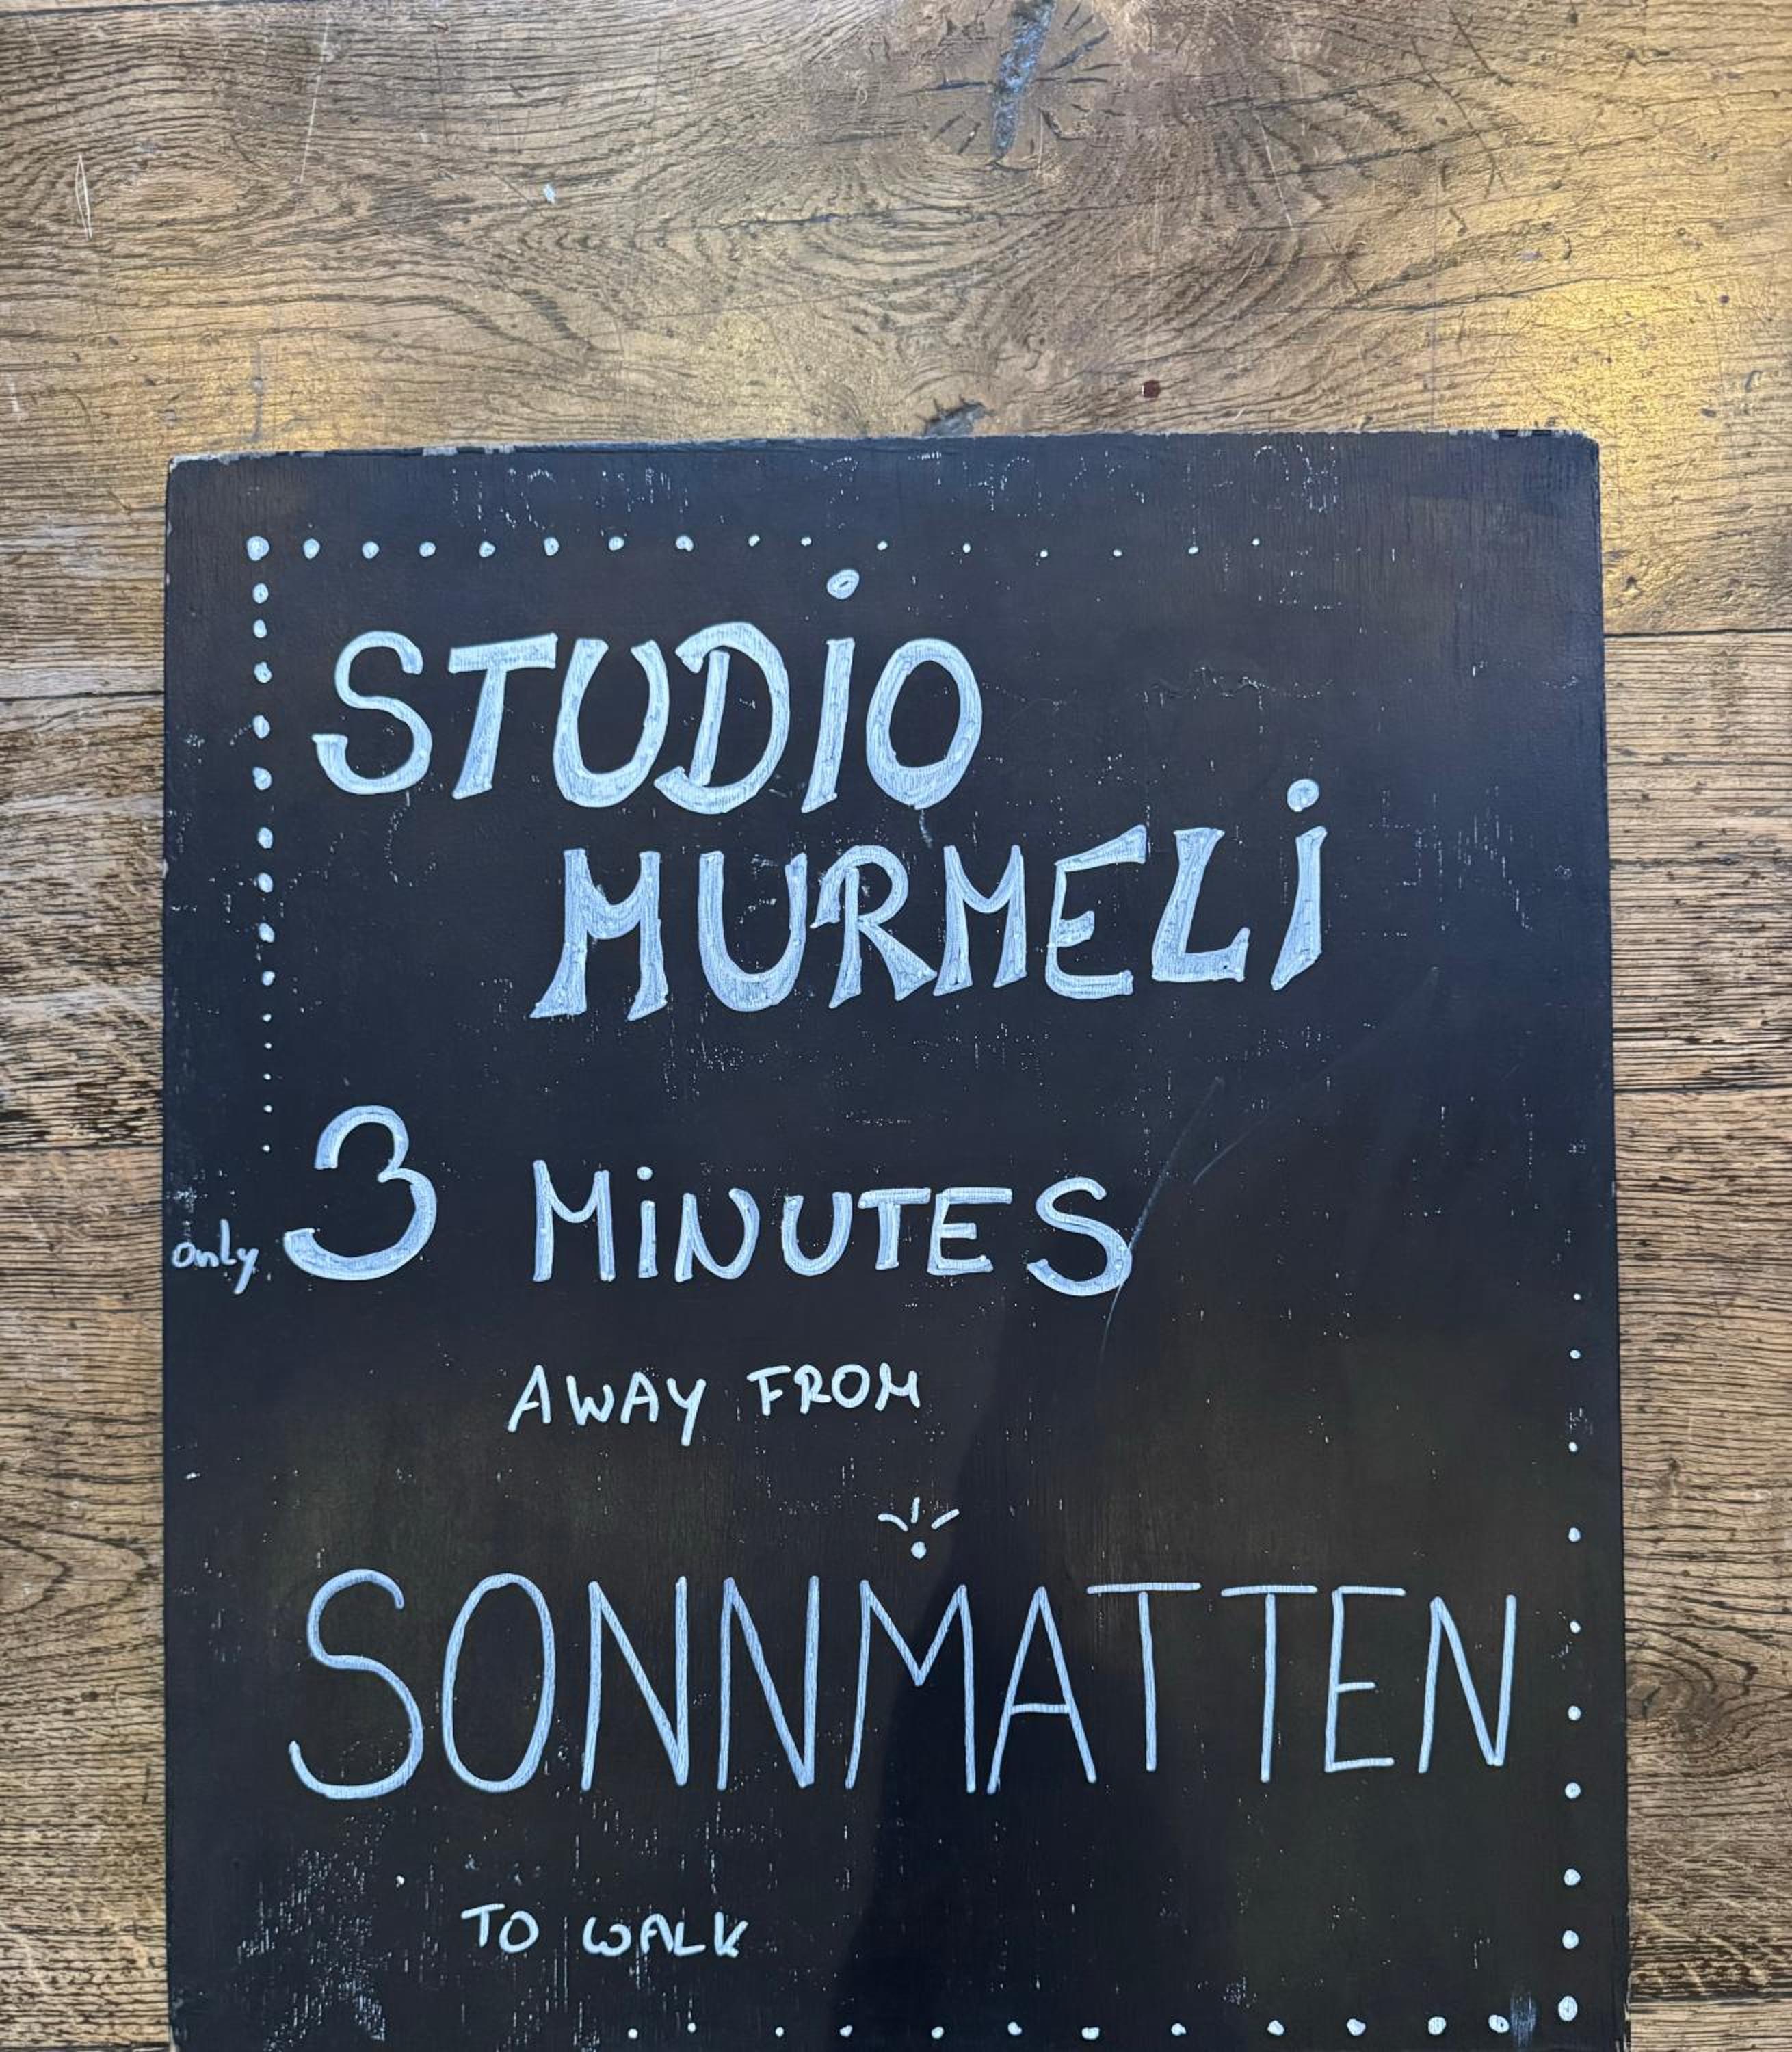 STUDiO
MURMELi
only 3 MiNUTES
AWAY FROM
SONNMATTEN
TO WALK